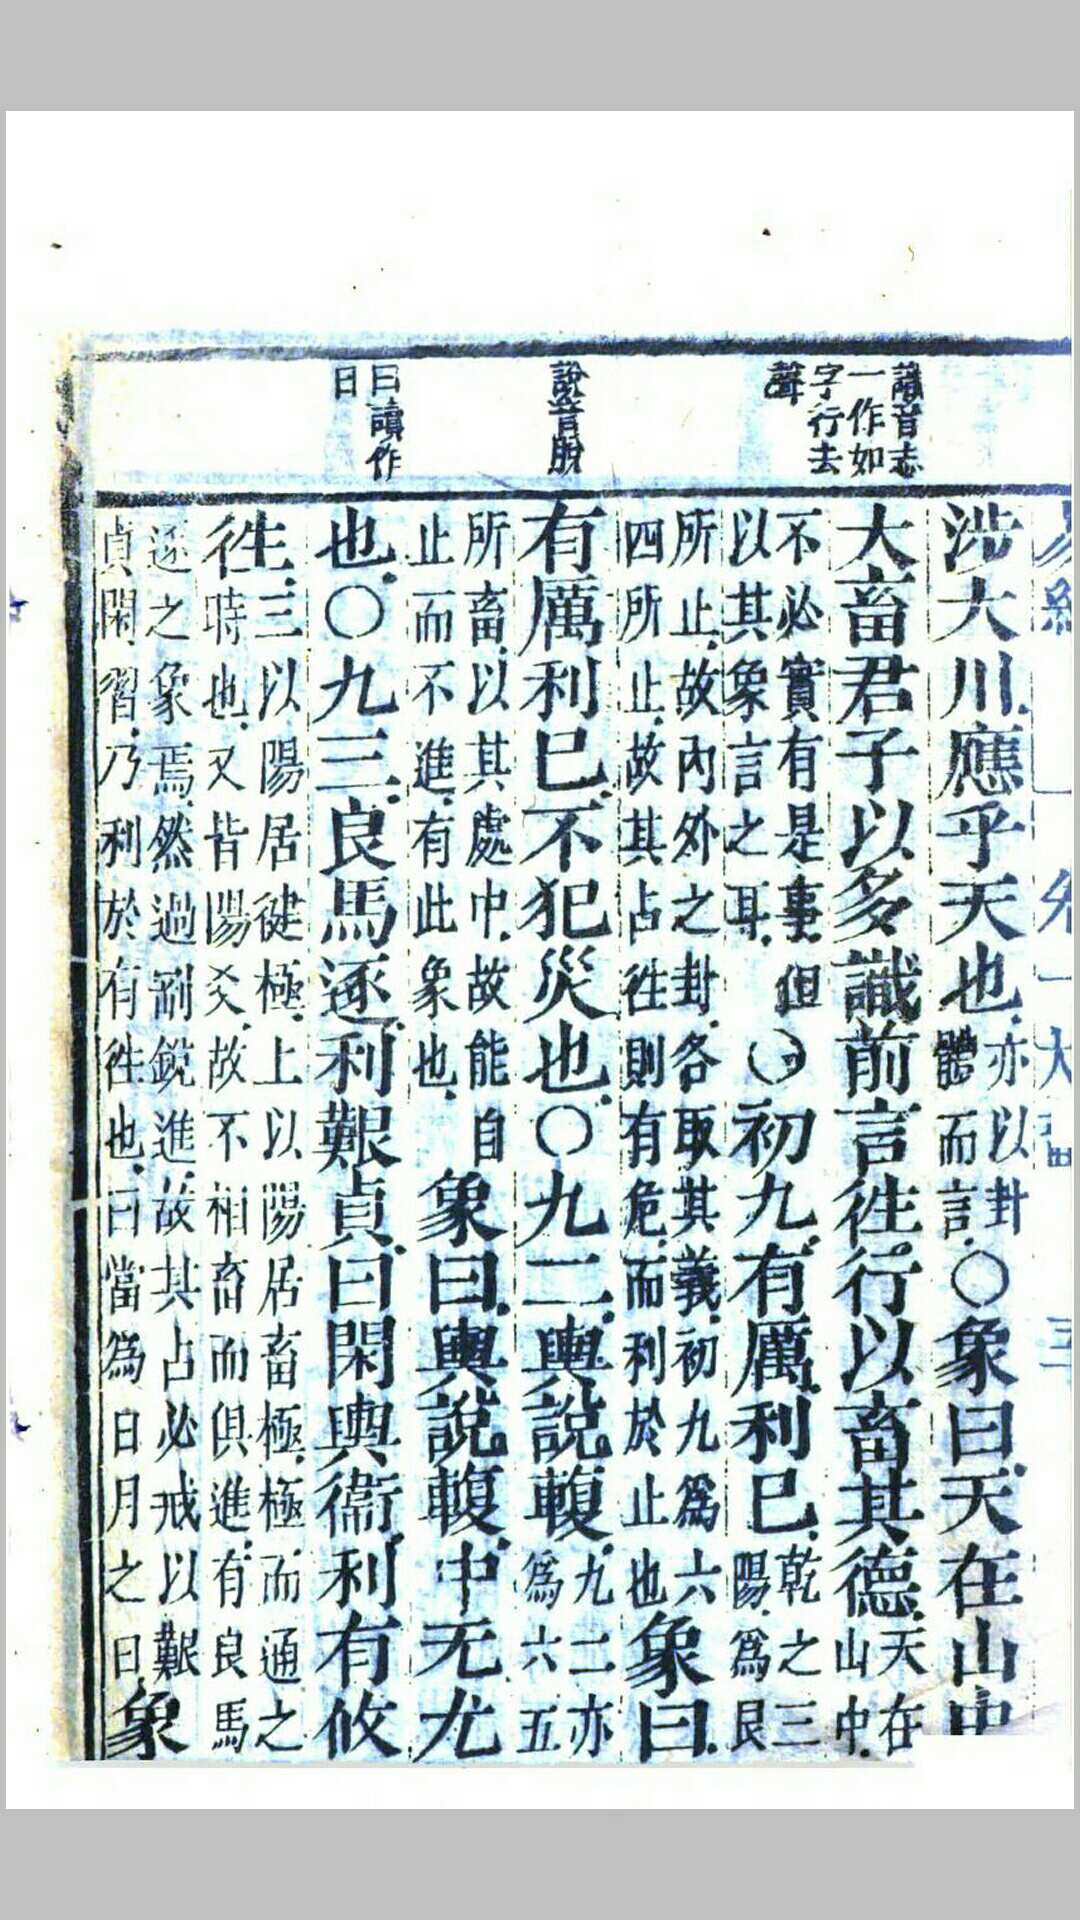 識音志
一作如
字行去
聲
說音脫
曰讀作
日
涉大川。應乎天也。亦以卦體而言。〇象曰。天在山中
大畜君子以多識前言往行以畜其德。天在山中。
不必實有是事。但以其象言之耳。〇初九。有厲。利已。乾之三陽。爲艮
所止。故內外之卦。各取其義。初九爲六四所止。故其占往則有危。而利於止也象曰。
有厲利已。不犯災也。〇九二。輿說輹。九二亦爲六五
所畜。以其處中。故能自止而不進。有此象也。象曰。輿說輹。中无尤
也。〇九三。良馬逐。利艱貞。曰閑輿衞。利有攸
往。三以陽居健極。上以陽居畜極。極而通之時也。又皆陽爻。故不相畜而俱進。有良馬
逐之象焉。然過剛銳進。故其占必戒以艱貞閑習。乃利於有往也。曰當爲日月之日。象